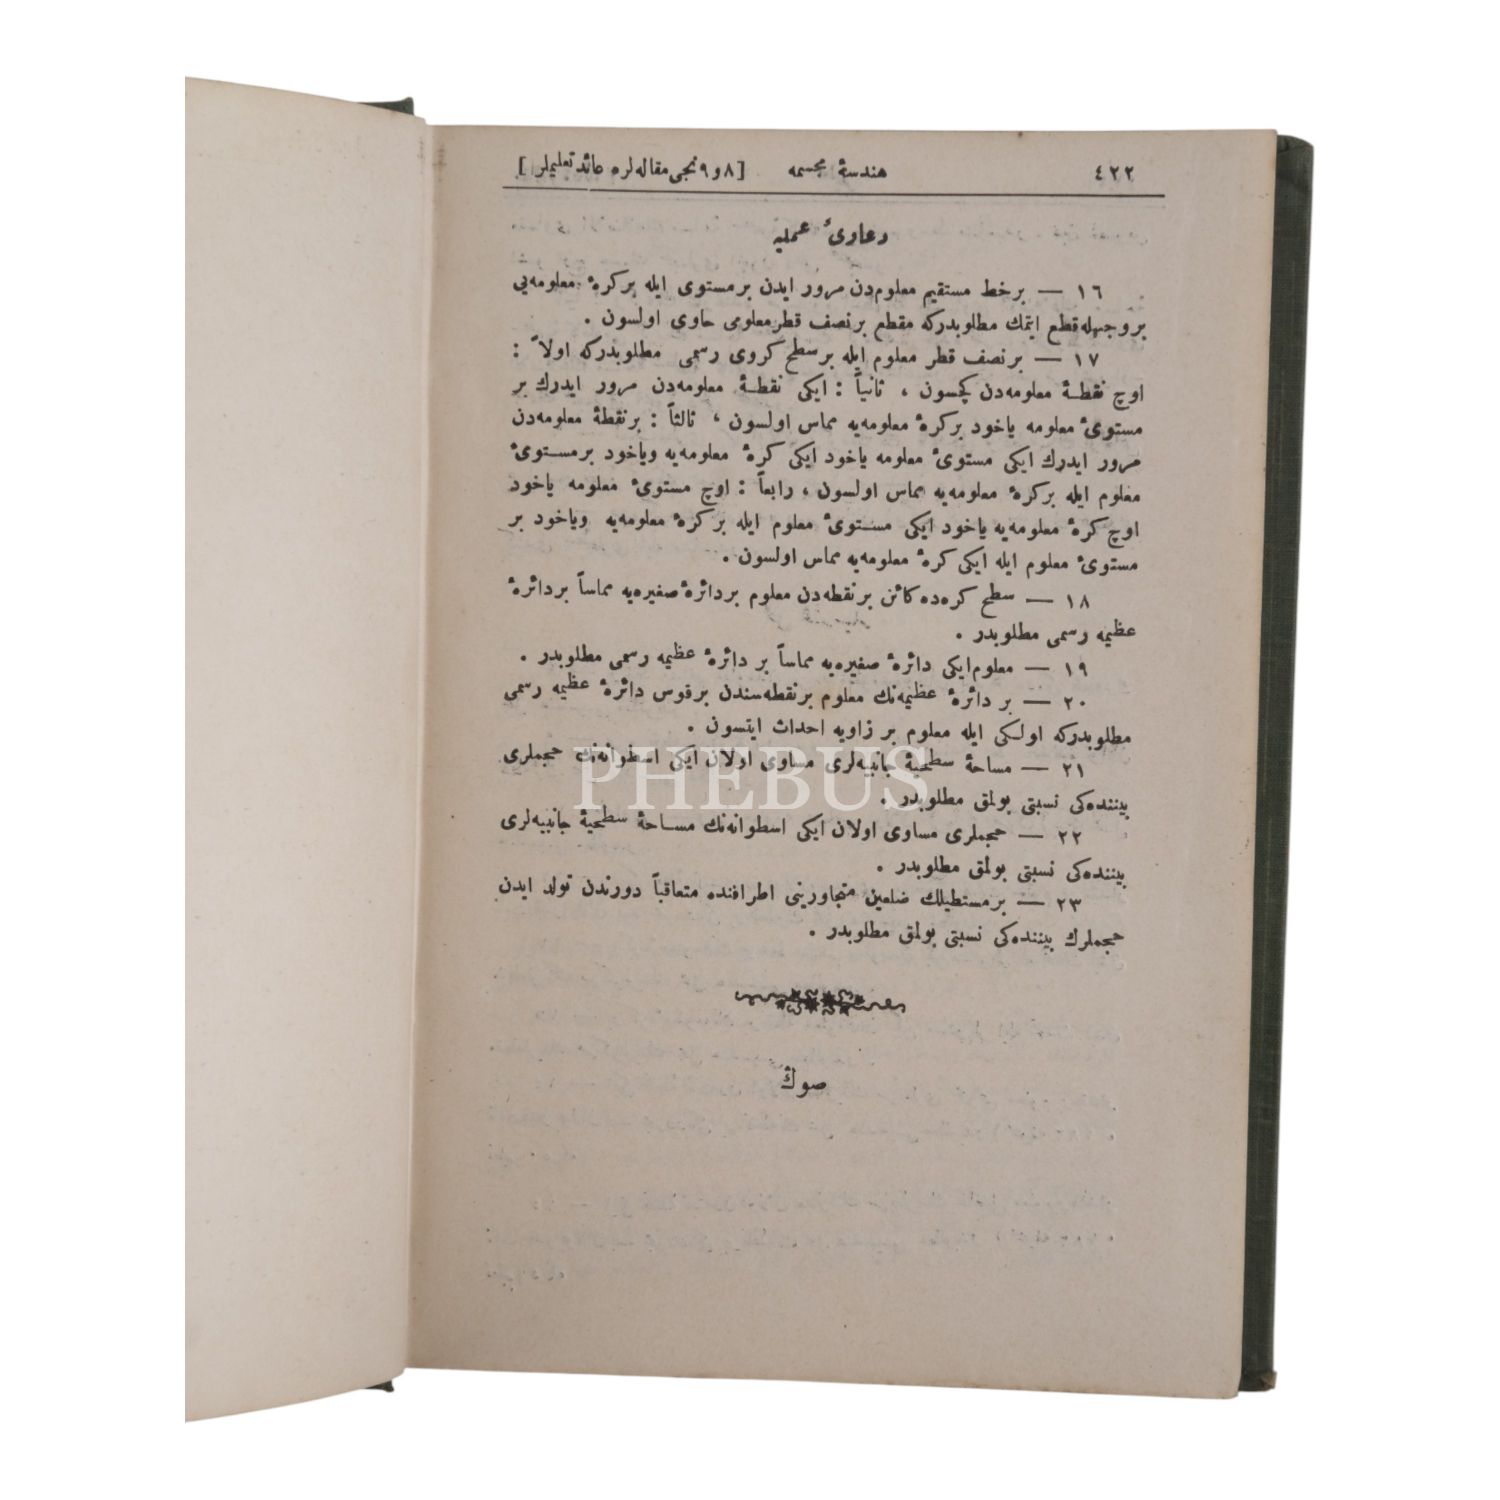 ٤٢٢ هندسهٔ مجسمه [ ٨ و ٩ نجی مقاله‌لره عائد تعلیملر ]
دعاوئ عملیه
١٦ — بر خط مستقیم معلومدن مرور ایدن بر مستوی ایله بر کرهٔ معلومه‌یی
بر وجهله قطع ایتمك مطلوبدركه مقطع بر نصف قطر معلومی حاوی اولسون .
١٧ — بر نصف قطر معلوم ایله بر سطح كروی رسمی مطلوبدركه اولاً :
اوچ نقطهٔ معلومه‌دن کچسون ، ثانیاً : ایكی نقطهٔ معلومه‌دن مرور ایدرك بر
مستوئ معلومه یاخود بر كرهٔ معلومه‌یه مماس اولسون ، ثالثاً : بر نقطهٔ معلومه‌دن
مرور ایدرك ایكی مستوئ معلومه یاخود ایكی كرهٔ معلومه‌یه ویاخود بر مستوئ
معلوم ایله بر كرهٔ معلومه‌یه مماس اولسون ، رابعاً : اوچ مستوئ معلومه یاخود
اوچ كرهٔ معلومه‌یه یاخود ایكی مستوئ معلوم ایله بر كرهٔ معلومه‌یه ویاخود بر
مستوئ معلوم ایله ایكی كرهٔ معلومه‌یه مماس اولسون .
١٨ — سطح كره‌ده كائن بر نقطه‌دن معلوم بر دائرهٔ صغیره‌یه مماساً بر دائرهٔ
عظیمه رسمی مطلوبدر .
١٩ — معلوم ایكی دائرهٔ صغیره‌یه مماساً بر دائرهٔ عظیمه رسمی مطلوبدر .
٢٠ — بر دائرهٔ عظیمه‌نك معلوم بر نقطه‌سندن بر قوس دائرهٔ عظیمه رسمی
مطلوبدركه اولكی ایله معلوم بر زاویه احداث ایتسون .
٢١ — مساحهٔ سطحیهٔ جانبیه‌لری مساوی اولان ایكی اسطوانه‌نك حجملری
بیننده‌كی نسبتی بولمق مطلوبدر .
PHEBUS
٢٢ — حجملری مساوی اولان ایكی اسطوانه‌نك مساحهٔ سطحیهٔ جانبیه‌لری
بیننده‌كی نسبتی بولمق مطلوبدر .
٢٣ — بر مستطیلك ضلعین متجاورینی اطرافنده متعاقباً دورندن تولد ایدن
حجملرك بیننده‌كی نسبتی بولمق مطلوبدر .
صوڭ